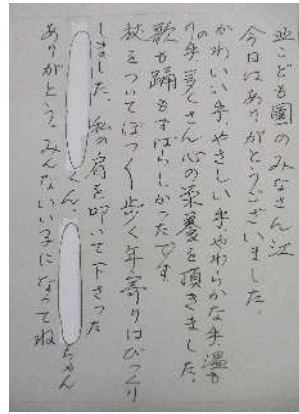 こども園のみなさん江
今日はありがとうございました。
かわいい手、やさしい手、やわらかな手、温も
りの手、多くさん心の栄養を頂きました。
歌も踊もすばらしかったです
杖をついてぼつ〱歩く年寄りはびっくり
しました。私の肩を叩いて下さった
くん、ちゃん
ありがとう、みんないい子になってね